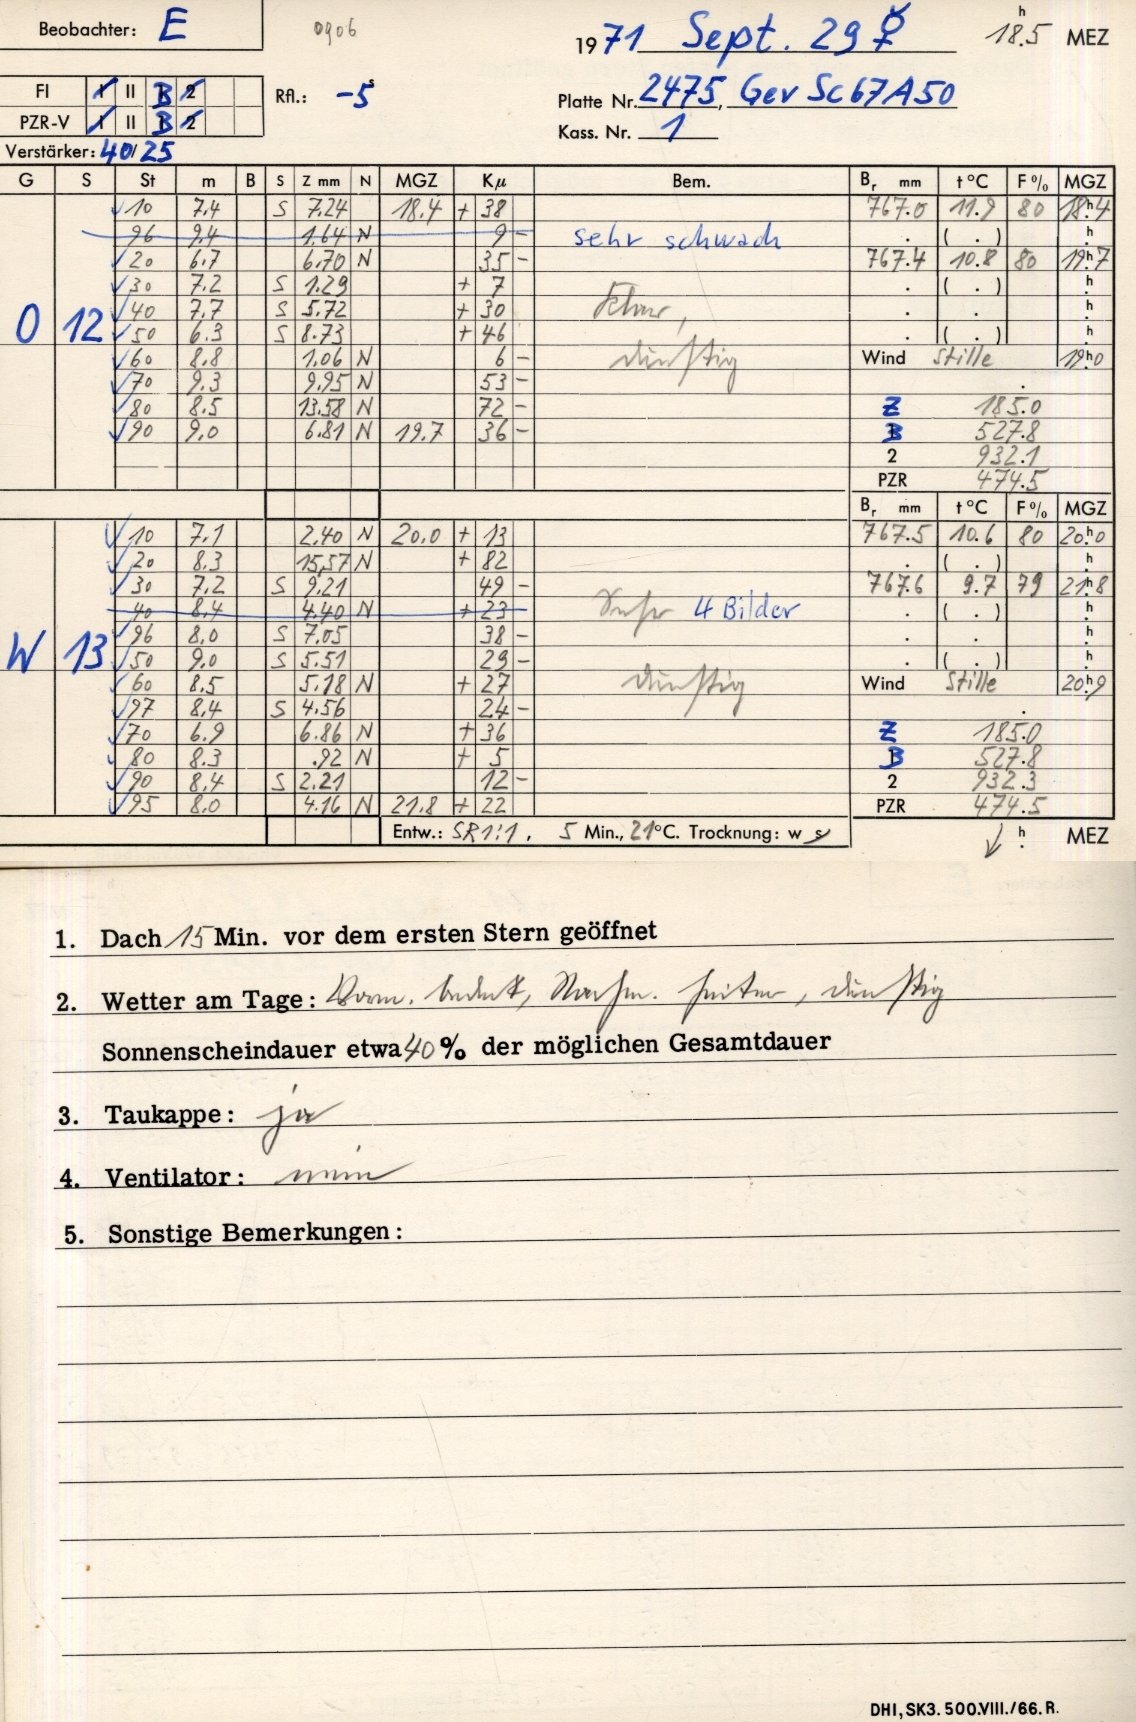 Beobachter: E 0906 1971 Sept. 29 ☿ 18.5 h MEZ
FI I II B 2 Rfl.: -5 s Platte Nr. 2475, Gev Sc67A50
PZR-V I II B 2 Kass. Nr. 1
Verstärker: 40/25
G S St m B S Z mm N MGZ Kμ Bem. Br mm t°C F% MGZ
O 12
10 7.4 S 7.24 18.4 + 38 767.0 11.9 80 18h4
96 9.4 1.64 N 9 - sehr schwach . ( . ) h
20 6.7 6.70 N 35 - 767.4 10.8 80 19h7
30 7.2 S 1.29 + 7 . ( . ) h
40 7.7 S 5.72 + 30 . . h
50 6.3 S 8.73 + 46 . ( . ) h
60 8.8 1.06 N 6 - dunstig Wind Stille 19h0
70 9.3 9.95 N 53 - .
80 8.5 13.58 N 72 - Z 185.0
90 9.0 6.81 N 19.7 36 - B 527.8
2 932.1
PZR 474.5
Br mm t°C F% MGZ
W 13
10 7.1 2.40 N 20.0 + 13 767.5 10.6 80 20h0
20 8.3 15.57 N + 82 . ( . ) h
30 7.2 S 9.21 49 - 767.6 9.7 79 21h8
40 8.4 4.40 N + 23 4 Bilder . ( . ) h
96 8.0 S 7.05 38 - . . h
50 9.0 S 5.51 29 - . ( . ) h
60 8.5 5.18 N + 27 dunstig Wind Stille 20h9
97 8.4 S 4.56 24 - .
70 6.9 6.86 N + 36 Z 185.0
80 8.3 .92 N + 5 B 527.8
90 8.4 S 2.21 12 - 2 932.3
95 8.0 4.16 N 21.8 + 22 PZR 474.5
Entw.: SR1:1, 5 Min., 21°C. Trocknung: w s ↓ h MEZ
1. Dach 15 Min. vor dem ersten Stern geöffnet
2. Wetter am Tage: Vorm. bedeckt, Nachm. heiter, dunstig
Sonnenscheindauer etwa 40 % der möglichen Gesamtdauer
3. Taukappe: ja
4. Ventilator: nein
5. Sonstige Bemerkungen:
DHI, SK3. 500.VIII./66. R.